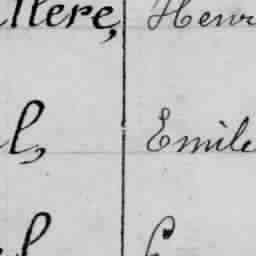 llere, Henr
l, Emile